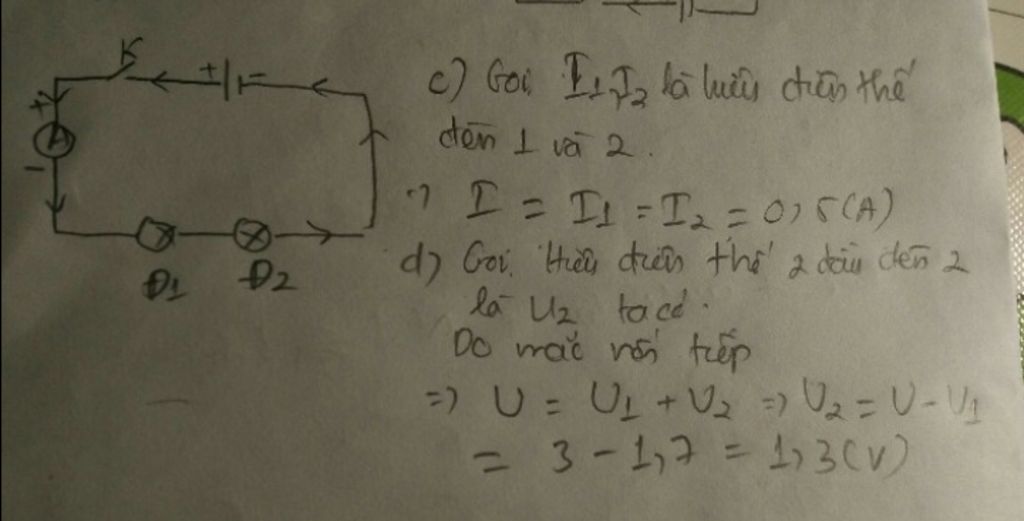 K
+ -
+
A
-
Đ1 Đ2
c) Gọi I1, I2 là hiệu điện thế
đèn 1 và 2.
=) I = I1 = I2 = 0,5(A)
d) Gọi hiệu điện thế 2 đầu đèn 2
là U2 ta có.
Do mắc nối tiếp
=) U = U1 + U2 =) U2 = U - U1
= 3 - 1,7 = 1,3(V)